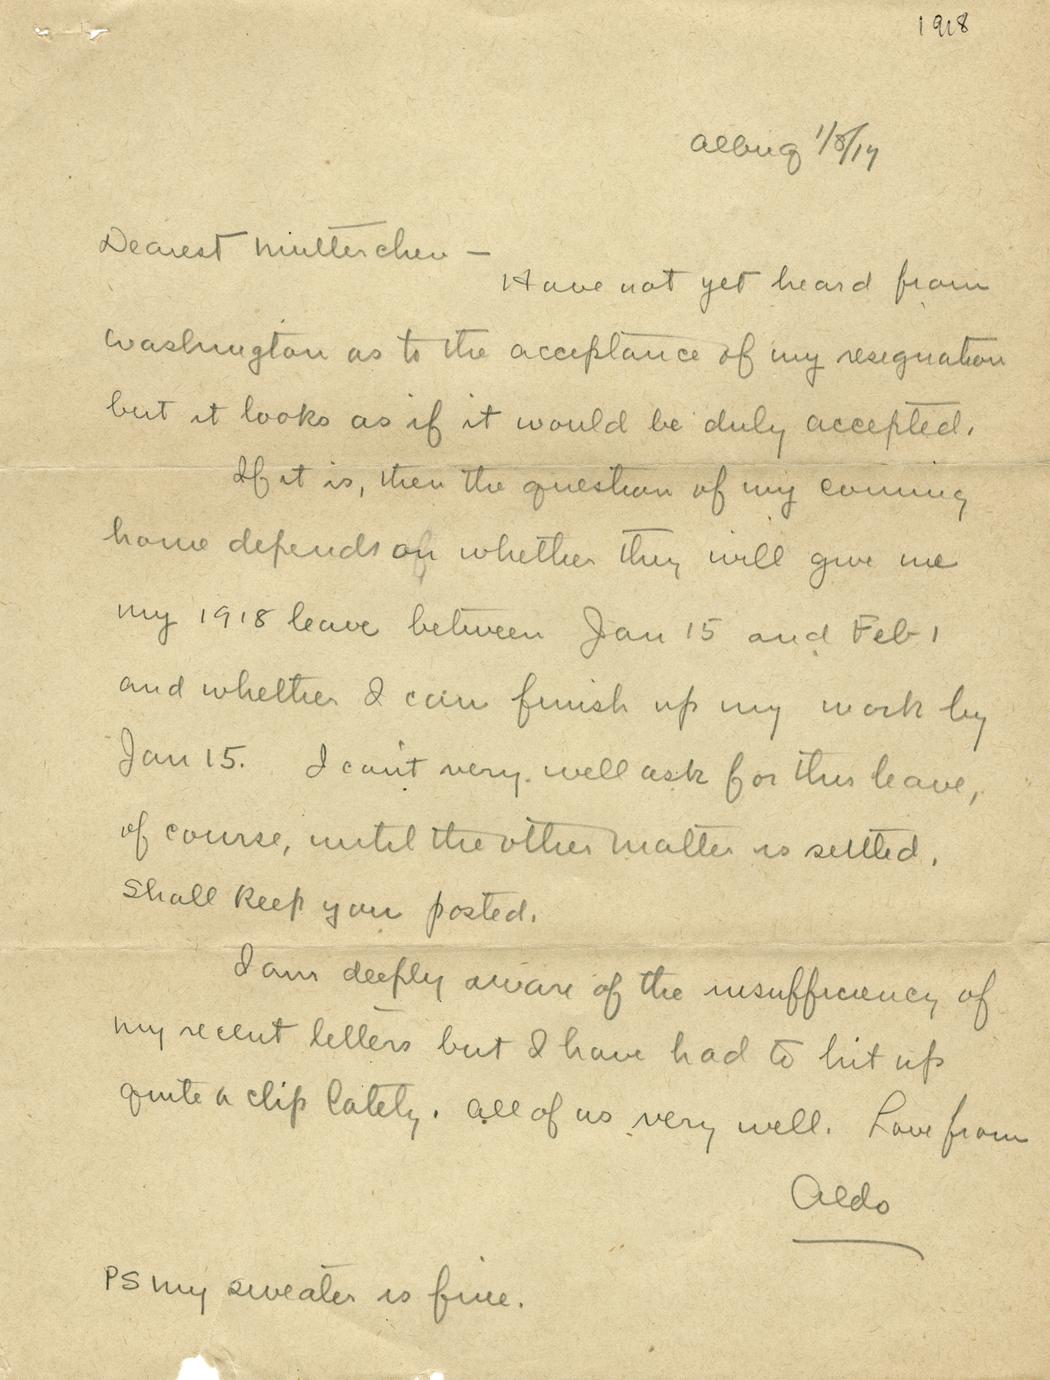 1918
Albuq 1/8/17
Dearest Mutterchen —
Have not yet heard from
Washington as to the acceptance of my resignation
but it looks as if it would be duly accepted.
If it is, then the question of my coming
home depends on whether they will give me
my 1918 leave between Jan 15 and Feb 1
and whether I can finish up my work by
Jan 15. I can't very well ask for this leave,
of course, until the other matter is settled.
Shall keep you posted.
I am deeply aware of the insufficiency of
my recent letters but I have had to hit up
quite a clip lately. All of us very well. Love from
Aldo
PS my sweater is fine.